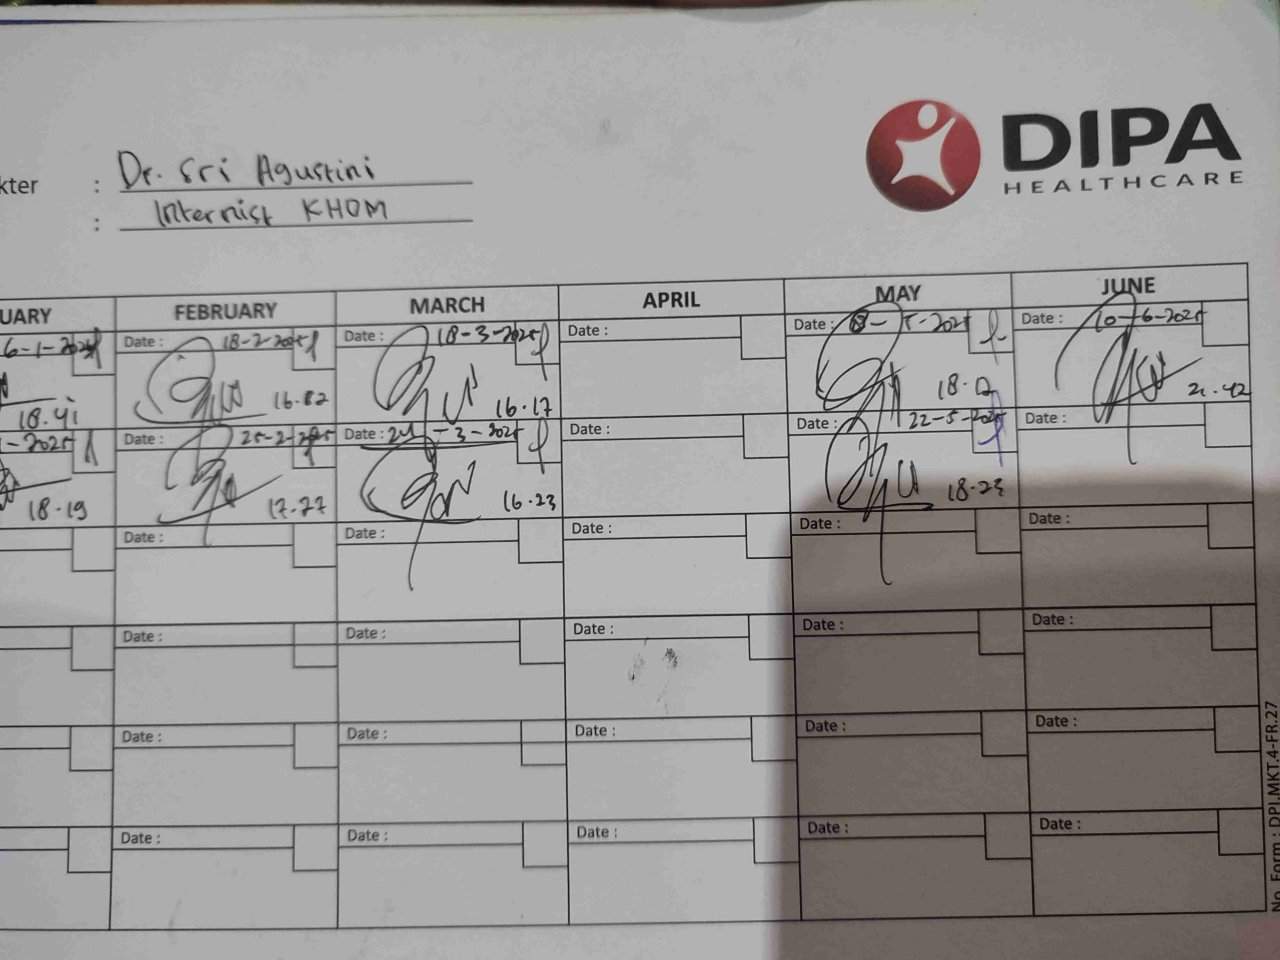 DIPA
HEALTHCARE
kter : Dr. Sri Agustini
: Internist KHOM
UARY FEBRUARY MARCH APRIL MAY JUNE
6-1-2025 Date : 18-2-2025 Date : 18-3-2025 Date : Date : 8-5-2025 Date : 10-6-2025
18.41 16.82 16.17 21.42
-2025 Date : 25-2-2025 Date : 24-3-2025 Date : Date : 22-5-2025 Date :
18.19 17.27 16.23 18.23
Date : Date : Date : Date : Date :
Date : Date : Date : Date : Date :
Date : Date : Date : Date : Date :
Date : Date : Date : Date : Date :
No. Form : DPI.MKT.4-FR.27